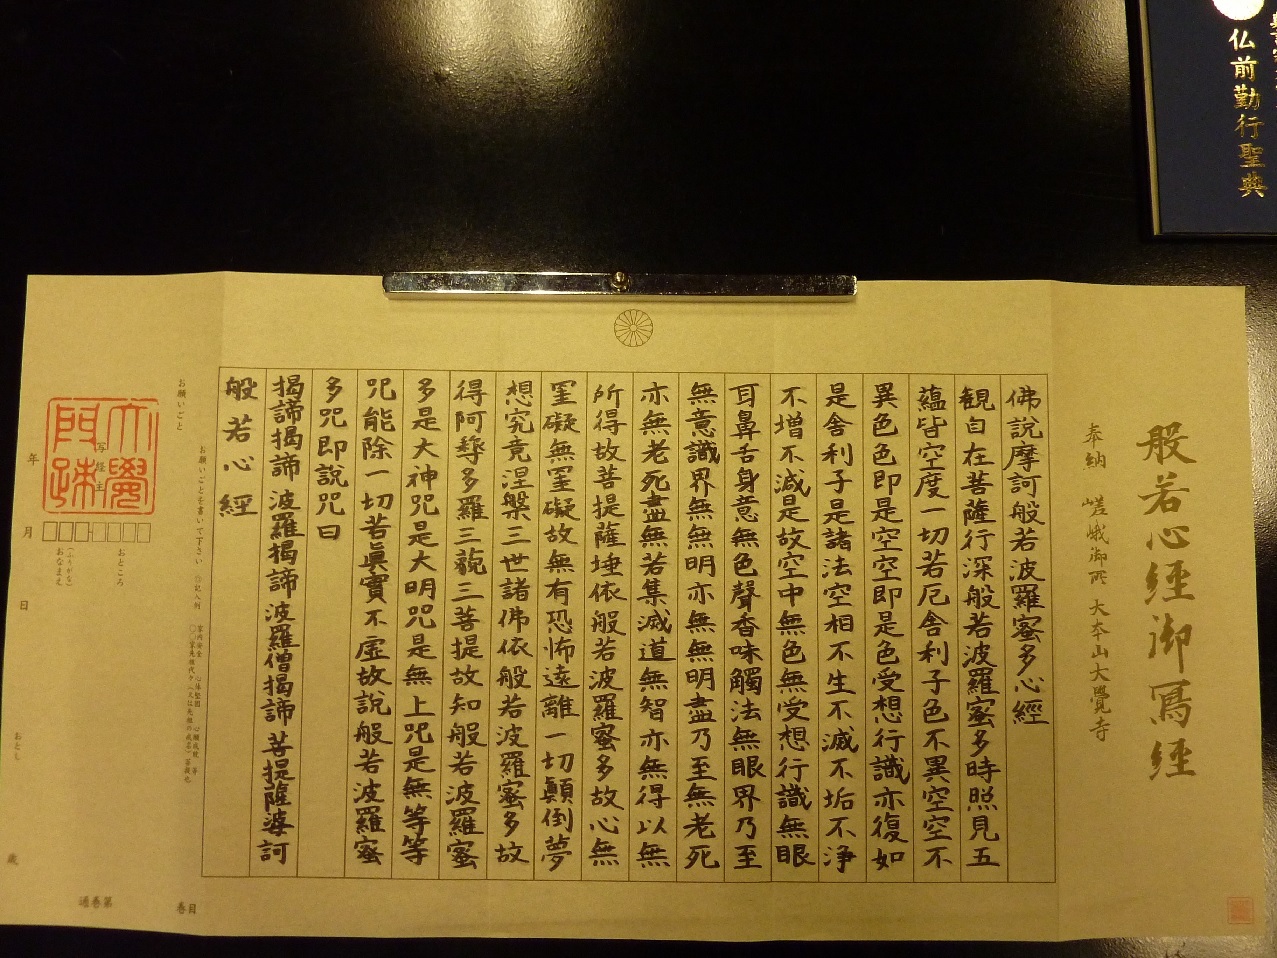 仏前勤行聖典
般若心経御写経
奉納 嵯峨御所 大本山大覺寺
佛說摩訶般若波羅蜜多心經
観自在菩薩行深般若波羅蜜多時照見五
蘊皆空度一切苦厄舎利子色不異空空不
異色色即是空空即是色受想行識亦復如
是舎利子是諸法空相不生不滅不垢不浄
不増不減是故空中無色無受想行識無眼
耳鼻舌身意無色聲香味觸法無眼界乃至
無意識界無無明亦無無明盡乃至無老死
亦無老死盡無苦集滅道無智亦無得以無
所得故菩提薩埵依般若波羅蜜多故心無
罣礙無罣礙故無有恐怖遠離一切顛倒夢
想究竟涅槃三世諸佛依般若波羅蜜多故
得阿耨多羅三藐三菩提故知般若波羅蜜
多是大神咒是大明咒是無上咒是無等等
咒能除一切苦眞實不虛故說般若波羅蜜
多咒即說咒曰
揭諦揭諦 波羅揭諦 波羅僧揭諦 菩提薩婆訶
般若心經
お願いごと
お願いごとを書いて下さい
記入例
家内安全
心願成就 等
おところ
(ふりがな)
おなまえ
写経主
大覺
門跡
年 月 日
おとし 歳
巻目
通巻第